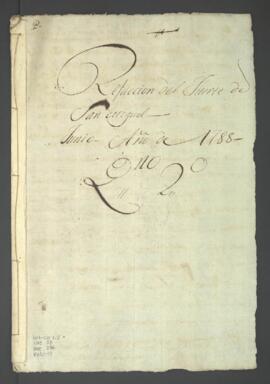 Refaccion del Fuerte de
San Miguel
Junio Año de 1788
Qno 2º